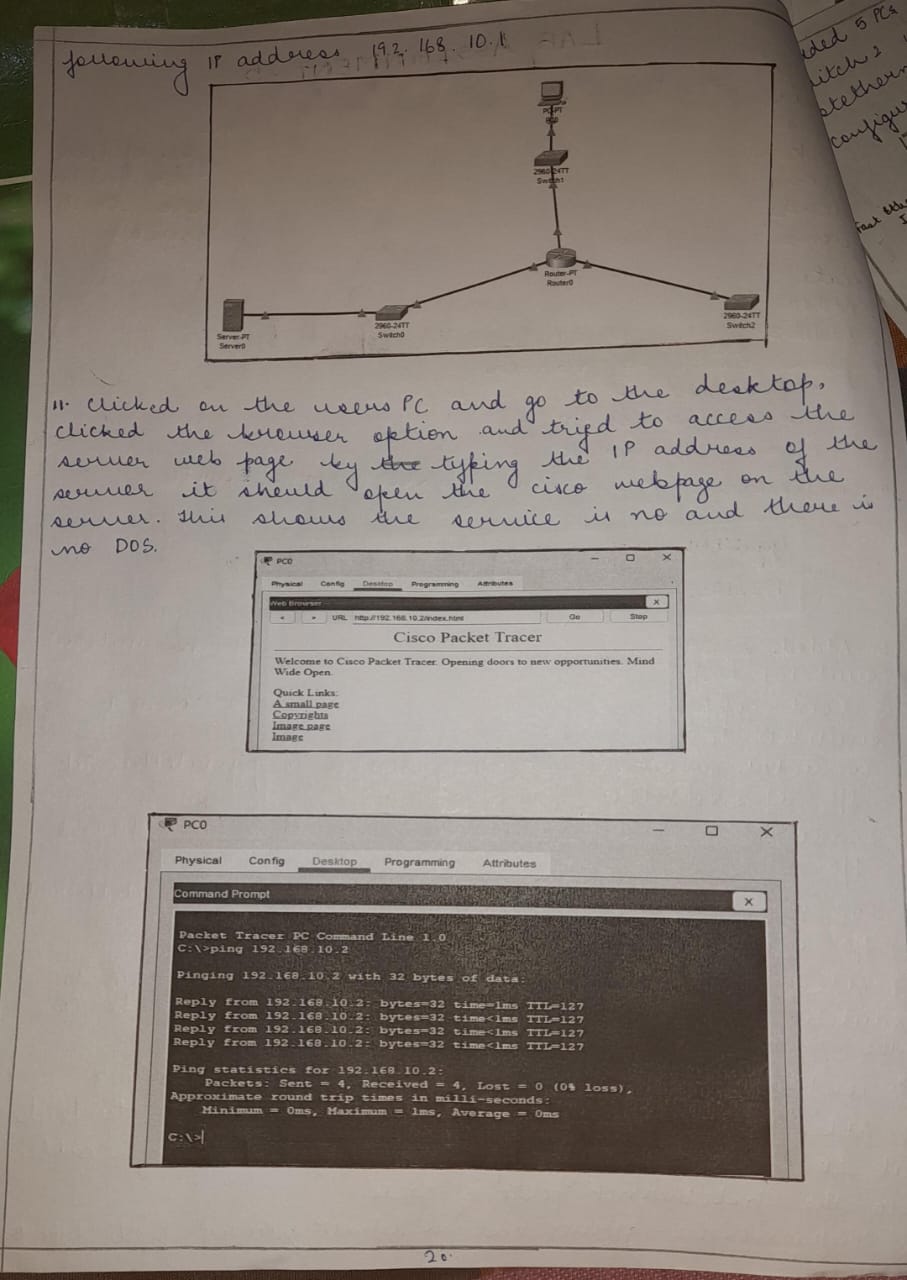 following IP address 192.168.10.1
PC-PT
2960-24TT
Switch1
Router-PT
Router0
Server-PT
Server0
2960-24TT
Switch0
2960-24TT
Switch2
11. Clicked on the users PC and go to the desktop,
clicked the browser option and tried to access the
server web page by the typing the IP address of the
server it should open the cisco webpage on the
server. This shows the service is no and there is
no DOS.
PC0
Physical Config Desktop Programming Attributes
Web Browser X
< > URL http://192.168.10.2/index.html Go Stop
Cisco Packet Tracer
Welcome to Cisco Packet Tracer. Opening doors to new opportunities. Mind
Wide Open.
Quick Links:
A small page
Copyrights
Image page
Image
PC0
Physical Config Desktop Programming Attributes
Command Prompt X
Packet Tracer PC Command Line 1.0
C:\>ping 192.168.10.2
Pinging 192.168.10.2 with 32 bytes of data:
Reply from 192.168.10.2: bytes=32 time=1ms TTL=127
Reply from 192.168.10.2: bytes=32 time<1ms TTL=127
Reply from 192.168.10.2: bytes=32 time<1ms TTL=127
Reply from 192.168.10.2: bytes=32 time<1ms TTL=127
Ping statistics for 192.168.10.2:
Packets: Sent = 4, Received = 4, Lost = 0 (0% loss),
Approximate round trip times in milli-seconds:
Minimum = 0ms, Maximum = 1ms, Average = 0ms
C:\>
20.
5 PCs